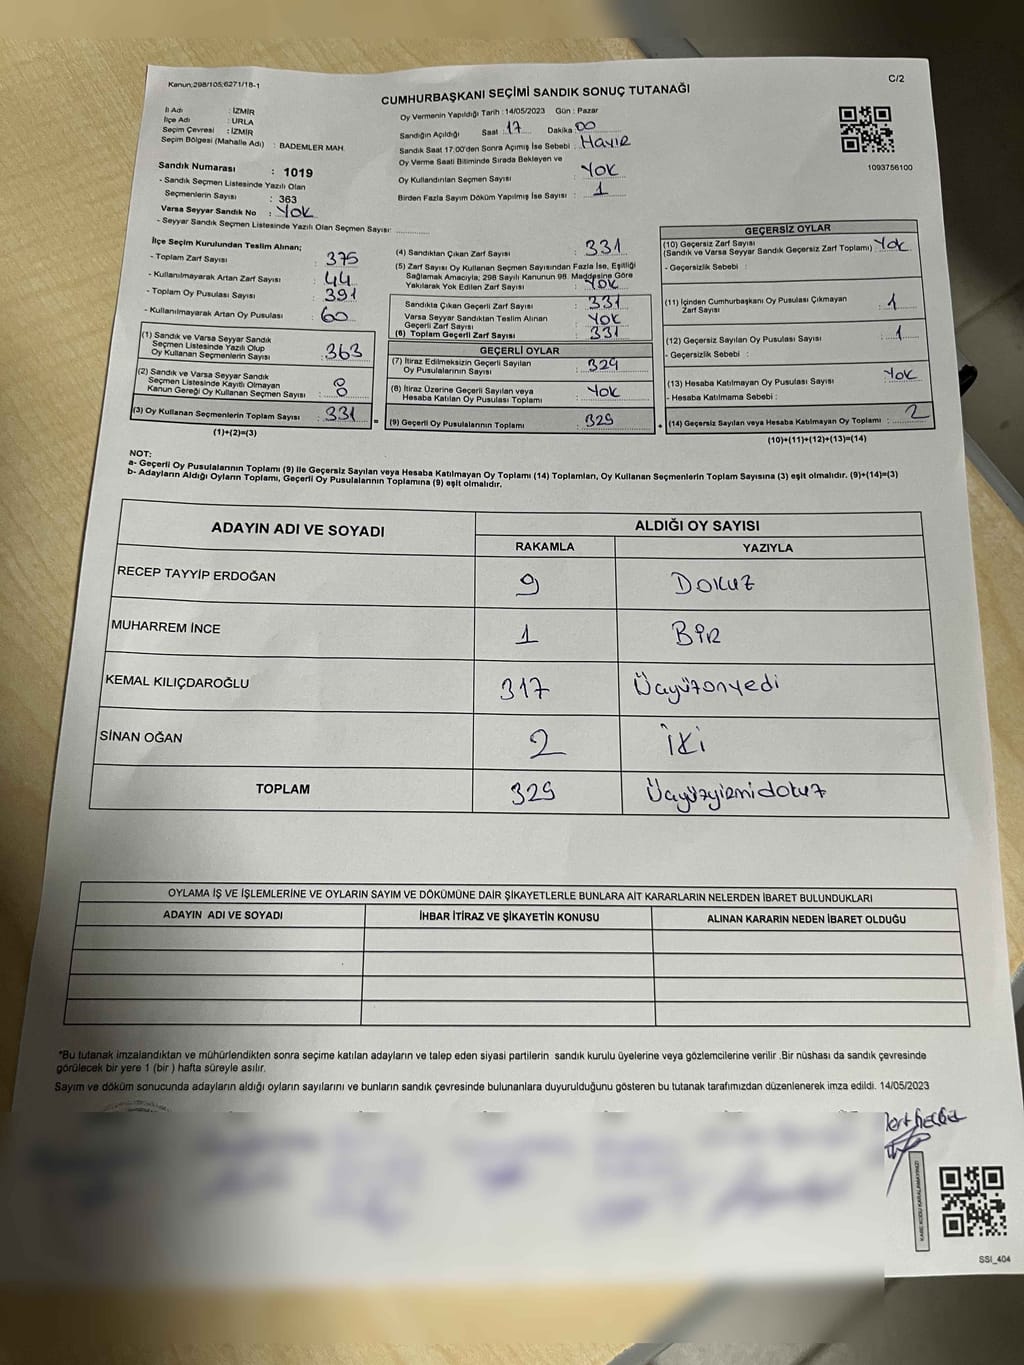 Kanun:298/105;6271/18-1
C/2
CUMHURBAŞKANI SEÇİMİ SANDIK SONUÇ TUTANAĞI
İl Adı : İZMİR
İlçe Adı : URLA
Seçim Çevresi : İZMİR
Seçim Bölgesi (Mahalle Adı) : BADEMLER MAH.
Sandık Numarası : 1019
- Sandık Seçmen Listesinde Yazılı Olan
Seçmenlerin Sayısı : 363
Varsa Seyyar Sandık No : Yok
- Seyyar Sandık Seçmen Listesinde Yazılı Olan Seçmen Sayısı: ............
Oy Vermenin Yapıldığı Tarih : 14/05/2023 Gün : Pazar
Sandığın Açıldığı Saat : 17 Dakika : 00
Sandık Saat 17:00'den Sonra Açımış İse Sebebi : HAYIR
Oy Verme Saati Bitiminde Sırada Bekleyen ve
Oy Kullandırılan Seçmen Sayısı : YOK
Birden Fazla Sayım Döküm Yapılmış İse Sayısı : 1
1093756100
İlçe Seçim Kurulundan Teslim Alınan;
- Toplam Zarf Sayısı : 375
- Kullanılmayarak Artan Zarf Sayısı : 44
- Toplam Oy Pusulası Sayısı : 391
- Kullanılmayarak Artan Oy Pusulası : 60
(1) Sandık ve Varsa Seyyar Sandık
Seçmen Listesinde Yazılı Olup
Oy Kullanan Seçmenlerin Sayısı : 363
(2) Sandık ve Varsa Seyyar Sandık
Seçmen Listesinde Kayıtlı Olmayan
Kanun Gereği Oy Kullanan Seçmen Sayısı : 8
(3) Oy Kullanan Seçmenlerin Toplam Sayısı : 331
(1)+(2)=(3)
(4) Sandıktan Çıkan Zarf Sayısı : 331
(5) Zarf Sayısı Oy Kullanan Seçmen Sayısından Fazla İse, Eşitliği
Sağlamak Amacıyla; 298 Sayılı Kanunun 98. Maddesine Göre
Yakılarak Yok Edilen Zarf Sayısı : YOK
Sandıkta Çıkan Geçerli Zarf Sayısı : 331
Varsa Seyyar Sandıktan Teslim Alınan
Geçerli Zarf Sayısı : YOK
(6) Toplam Geçerli Zarf Sayısı : 331
GEÇERLİ OYLAR
(7) İtiraz Edilmeksizin Geçerli Sayılan
Oy Pusulalarının Sayısı : 329
(8) İtiraz Üzerine Geçerli Sayılan veya
Hesaba Katılan Oy Pusulası Toplamı : YOK
= (9) Geçerli Oy Pusulalarının Toplamı : 329
GEÇERSİZ OYLAR
(10) Geçersiz Zarf Sayısı
(Sandık ve Varsa Seyyar Sandık Geçersiz Zarf Toplamı) : Yok
- Geçersizlik Sebebi :
(11) İçinden Cumhurbaşkanı Oy Pusulası Çıkmayan
Zarf Sayısı : 1
(12) Geçersiz Sayılan Oy Pusulası Sayısı : 1
- Geçersizlik Sebebi :
(13) Hesaba Katılmayan Oy Pusulası Sayısı : Yok
- Hesaba Katılmama Sebebi :
+ (14) Geçersiz Sayılan veya Hesaba Katılmayan Oy Toplamı : 2
(10)+(11)+(12)+(13)=(14)
NOT:
a- Geçerli Oy Pusulalarının Toplamı (9) ile Geçersiz Sayılan veya Hesaba Katılmayan Oy Toplamı (14) Toplamları, Oy Kullanan Seçmenlerin Toplam Sayısına (3) eşit olmalıdır. (9)+(14)=(3)
b- Adayların Aldığı Oyların Toplamı, Geçerli Oy Pusulalarının Toplamına (9) eşit olmalıdır.
ADAYIN ADI VE SOYADI
ALDIĞI OY SAYISI
RAKAMLA YAZIYLA
RECEP TAYYİP ERDOĞAN 9 Dokuz
MUHARREM İNCE 1 BİR
KEMAL KILIÇDAROĞLU 317 Üçyüzonyedi
SİNAN OĞAN 2 İki
TOPLAM 329 Üçyüzyirmidokuz
OYLAMA İŞ VE İŞLEMLERİNE VE OYLARIN SAYIM VE DÖKÜMÜNE DAİR ŞİKAYETLERLE BUNLARA AİT KARARLARIN NELERDEN İBARET BULUNDUKLARI
ADAYIN ADI VE SOYADI İHBAR İTİRAZ VE ŞİKAYETİN KONUSU ALINAN KARARIN NEDEN İBARET OLDUĞU
*Bu tutanak imzalandıktan ve mühürlendikten sonra seçime katılan adayların ve talep eden siyasi partilerin sandık kurulu üyelerine veya gözlemcilerine verilir .Bir nüshası da sandık çevresinde
görülecek bir yere 1 (bir ) hafta süreyle asılır.
Sayım ve döküm sonucunda adayların aldığı oyların sayılarını ve bunların sandık çevresinde bulunanlara duyurulduğunu gösteren bu tutanak tarafımızdan düzenlenerek imza edildi. 14/05/2023
KARE KODU KARALAMAYINIZ!
SSI_404